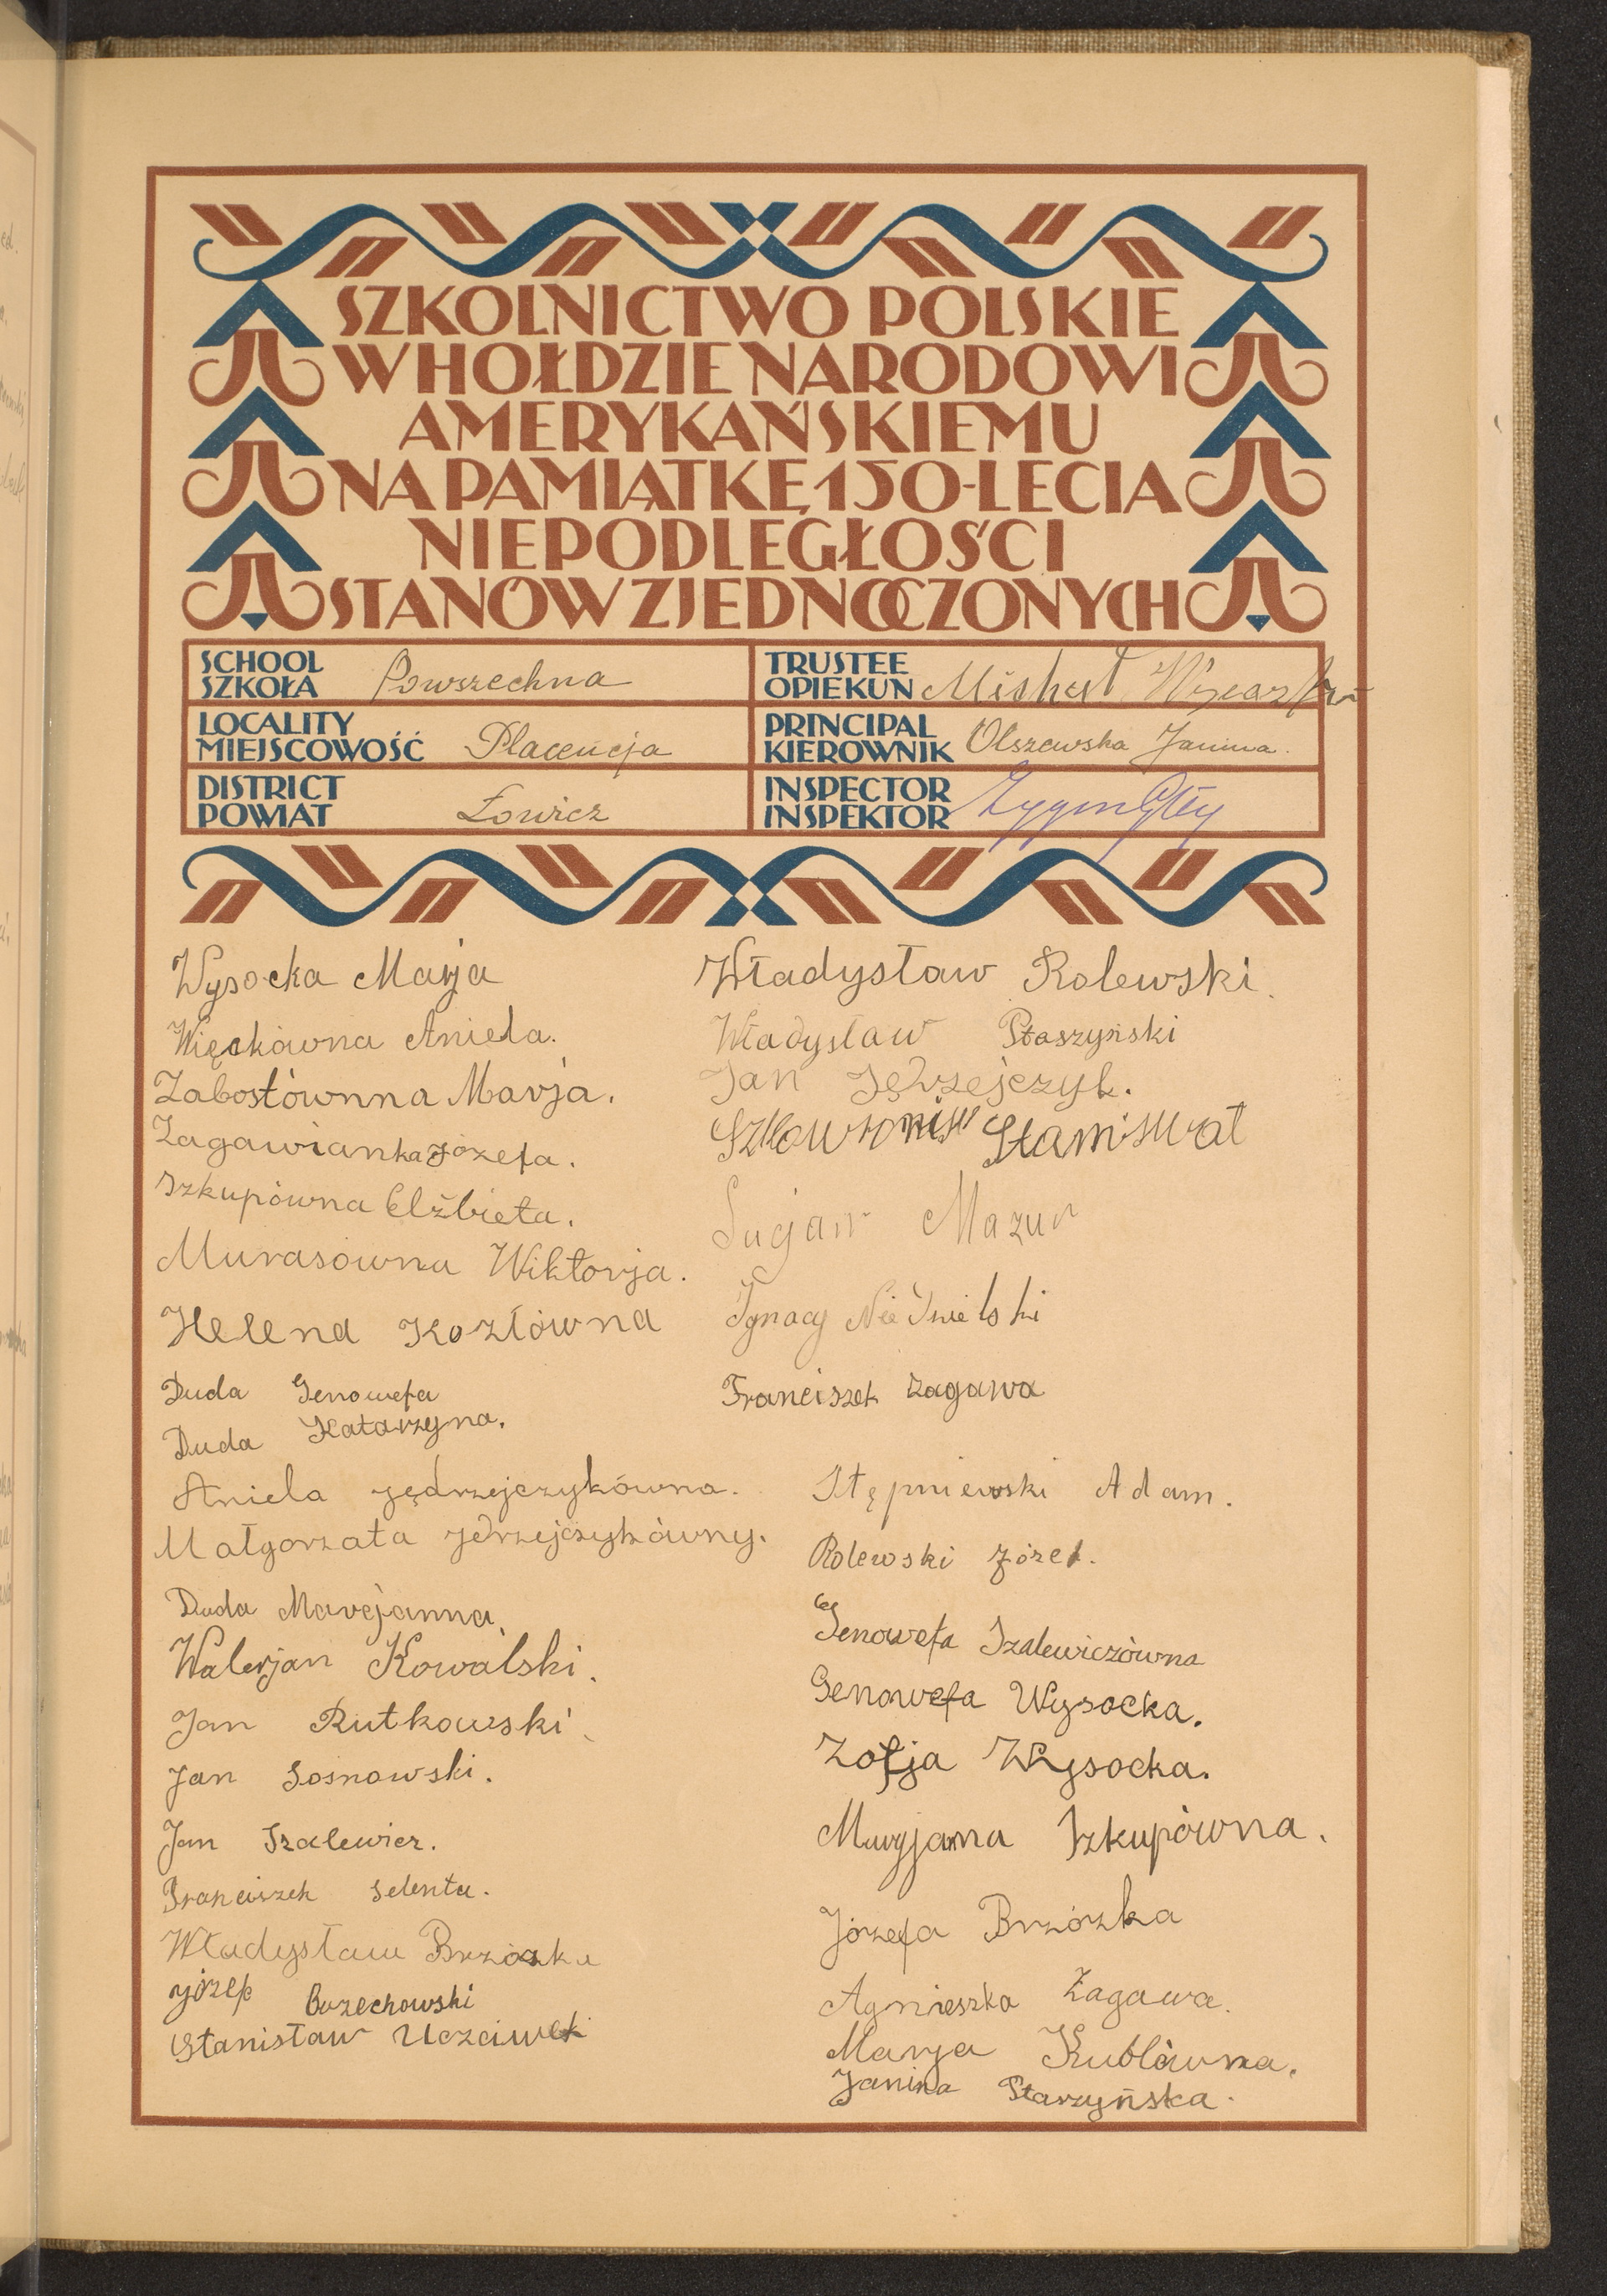 SZKOLNICTWO POLSKIE
W HOŁDZIE NARODOWI
AMERYKAŃSKIEMU
NA PAMIĄTKĘ 150-LECIA
NIEPODLEGŁOŚCI
STANÓW ZJEDNOCZONYCH
SCHOOL
SZKOŁA Powszechna
TRUSTEE
OPIEKUN
LOCALITY
MIEJSCOWOŚĆ Placencja
PRINCIPAL
KIEROWNIK Olszewska Janina.
DISTRICT
POWIAT Łowicz
INSPECTOR
INSPEKTOR
Wysocka Marja
Więckówna Aniela.
Zabostównna Marja.
Zagawianka Józefa.
Szkupówna Elżbieta.
Murasówna Wiktorja.
Helena Kozłówna
Duda Genowefa
Duda Katarzyna.
Aniela Jędrzejczykówna.
Małgorzata Jedrzejczykówny.
Duda Marejanna.
Walerjan Kowalski.
Jan Rutkowski.
Jan Sosnowski.
Jan Szalewicz.
Franciszek Selenta.
Władysław Brzózka
Józef Bozechowski
Stanisław Uczciwek
Władysław Rolewski.
Władysław Ptaszyński
Jan Jędrzejczyk.
Mazur
Ignacy
Franciszek Zagawa
Stępniewski Adam.
Rolewski Józef.
Genowefa Szalewiczówna
Genowefa Wysocka.
Zofja Wysocka.
Maryjanna Szkupówna.
Józefa Brzózka
Agnieszka Żagawa.
Marja Kublówna.
Janina Starzyńska.